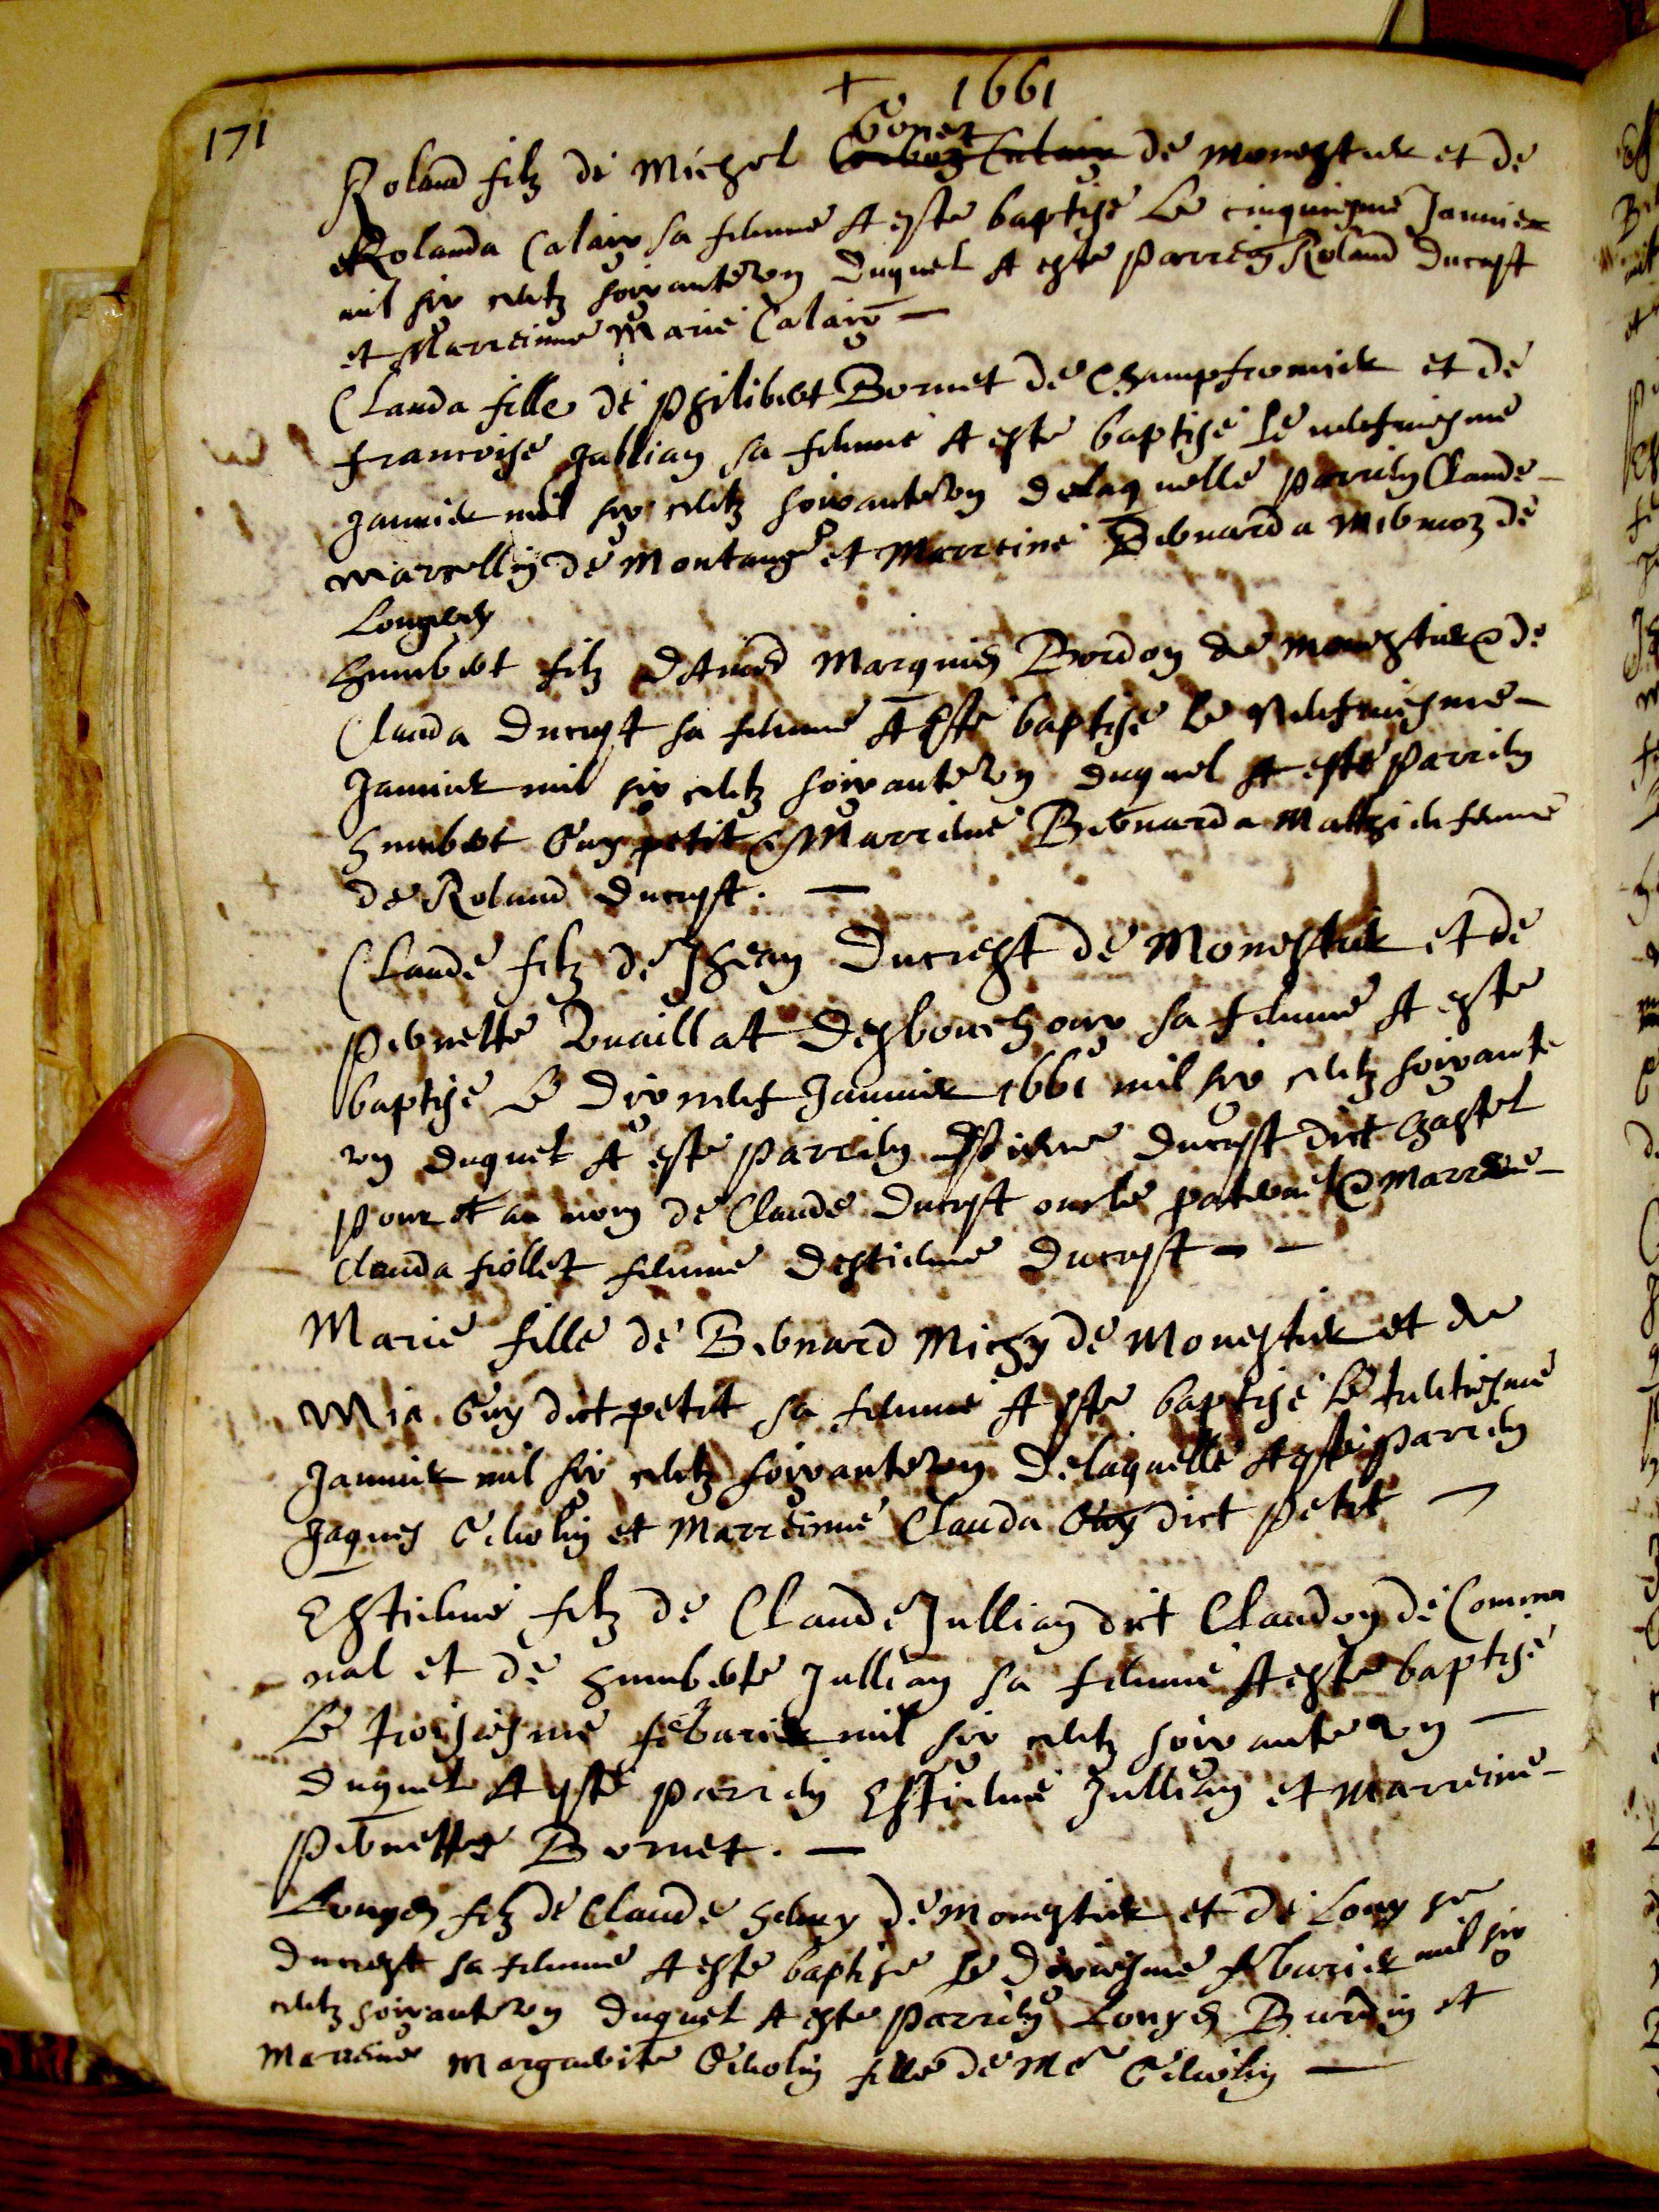 171
+ 1661
Gonet
Roland filz de Michel de monestier et de
Rolanda Calaix sa femme A este baptisé Le cinquiesme Jannier
mil six centz soixante un duquel A este parrein Roland ducrest
et Marreinne Marie Calaix —
Clauda fille de philibert Bornet de Champfromier et de
francoise Jullian sa femme A este baptisé le neufuiesme
januier mil six centz soixante un delaquelle parrein Claude
marcellin de montange et marreine Bernarda mermoz de
Longeray
humbert filz dAimé Marquis Bordon de monestier & de
Clauda Ducrest sa femme A Este baptisé le Neufuiesme —
Januier mil six centz soixante un duquel A esté parrein
humbert Guy petit & Marreine Bernarda femme
de Roland ducrest. —
Claude filz de Jhean Ducrest de Monestier et de
pernette Truaillat Desbouchoux sa femme A este
baptisé le dixneuf Januier 1661 mil six centz soixante
un duquel A esté parrein Estienne ducrest dict Chastel
pour et au nom de Claude ducrest oncle paternel & Marreine —
Clauda fiollet femme destienne ducrest — —
Marie fille de Bernard Michy de Monestier et de
Mia Guy dict petit sa femme A este baptisé le trentiesme
Januier mil six centz soixante un delaquelle A esté parrein
Jaques Genolin et Marreinne Clauda Guy dict petit —
Estienne filz de Claude Jullian dict Claudon de Commu
nal et de humberte Jullian sa femme A este baptisé
le troisiesme feburier mil six centz soixante un —
duquel A esté parrein Estienne Jullian et marreine —
pernette Bornet. —
Louys filz de Claude henry de monestier et de Louyse
ducrest sa femme A este baptisé le dixiesme feburier mil six
centz soixante un duquel A este parrein Louys Burdin et
marreine margueritte Genolin fille de Me Genolin —